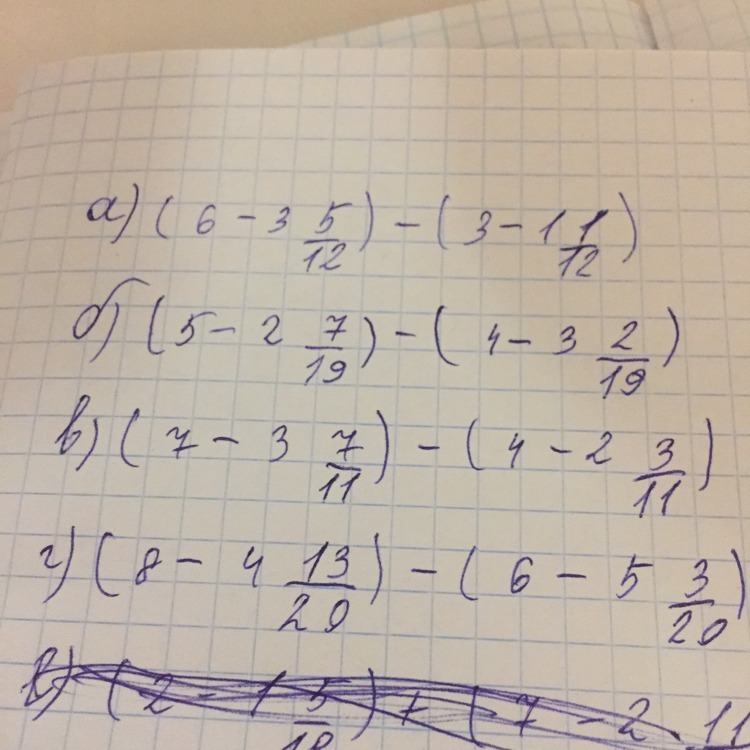 а) (6 - 3 5/12) - (3 - 1 1/12)
б) (5 - 2 7/19) - (4 - 3 2/19)
в) (7 - 3 7/11) - (4 - 2 3/11)
г) (8 - 4 13/20) - (6 - 5 3/20)
(2 - 1 5/18) + (7 - 2 11